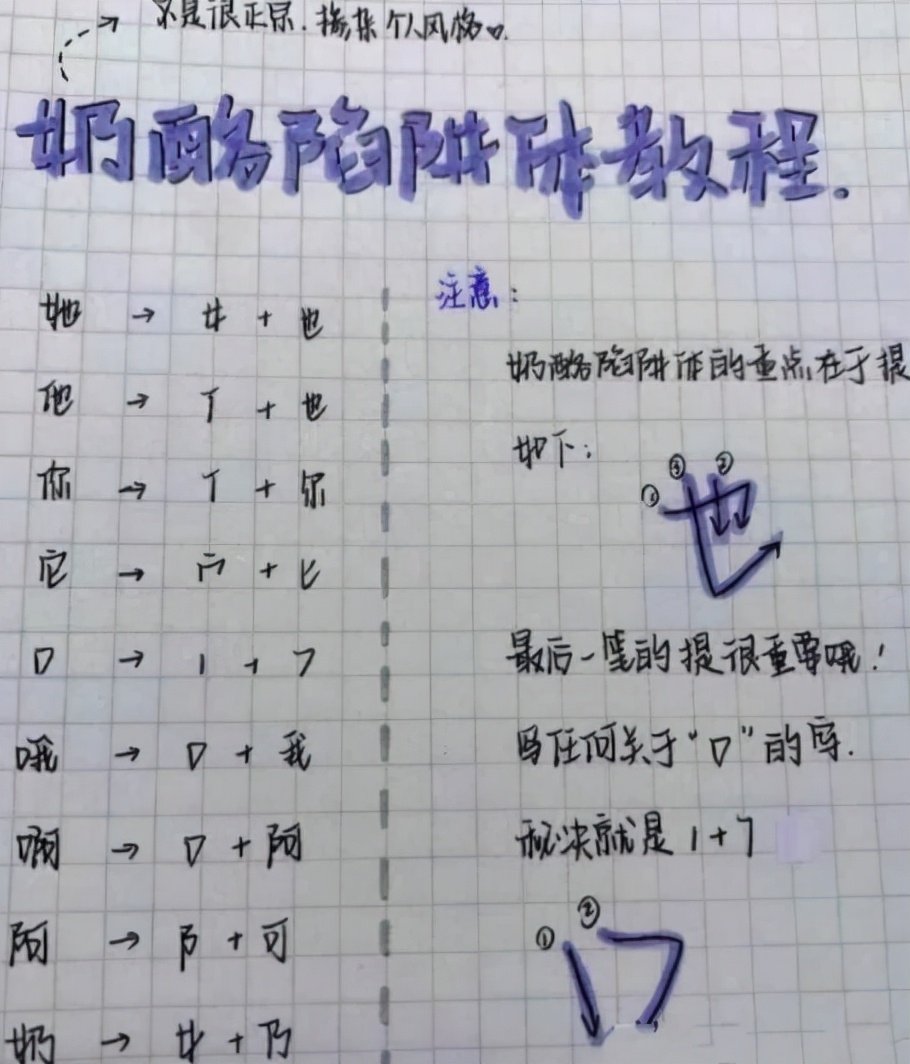 不是很正宗.掺杂个人风格
奶酪陷阱体教程.
她 → 女 + 也
他 → 亻 + 也
你 → 亻 + 尔
它 → 宀 + 匕
口 → 1 + 7
哦 → 口 + 我
啊 → 口 + 阿
阿 → 阝 + 可
奶 → 女 + 乃
注意:
奶酪陷阱体的重点在于提
如下:
① ③ ②
也
最后一笔的提很重要哦!
写任何关于“口”的字.
秘诀就是 1+7
① ②
口